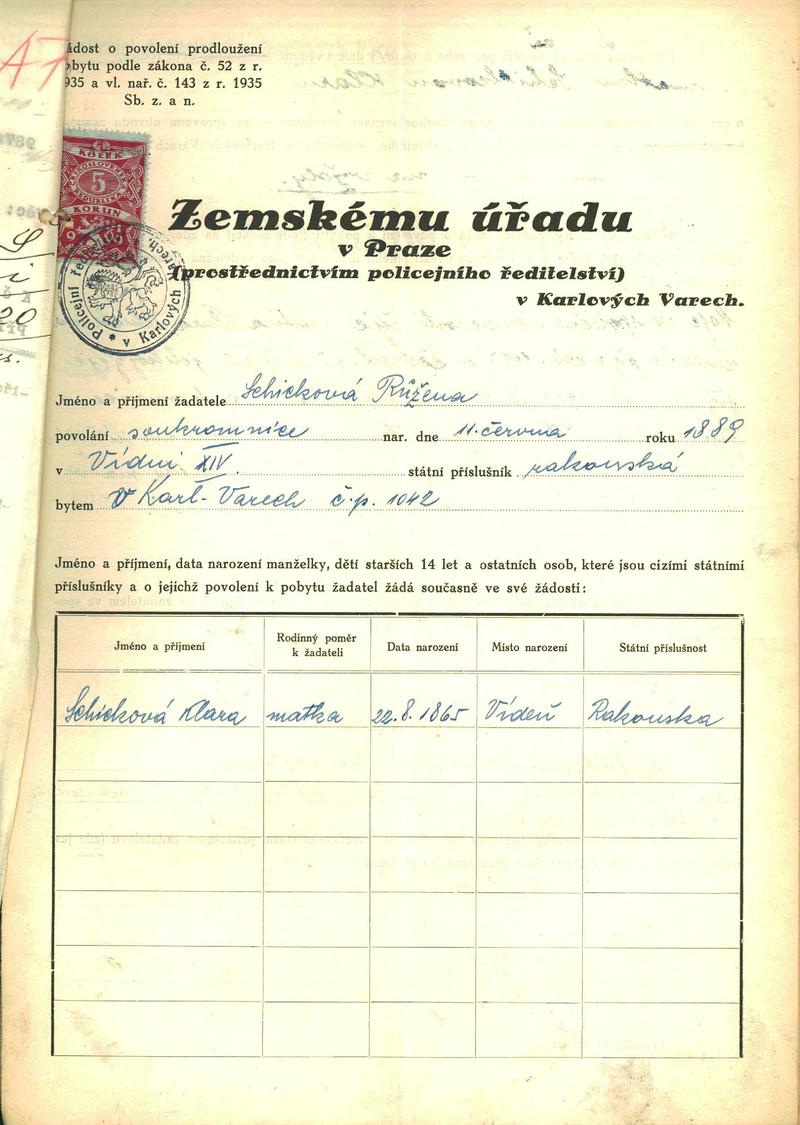 A7
ádost o povolení prodloužení
obytu podle zákona č. 52 z r.
935 a vl. nař. č. 143 z r. 1935
Sb. z. a n.
KOLEK
5
KORUN
Zemskému úřadu
v Praze
(prostřednictvím policejního ředitelství)
v Karlových Varech.
Policejní ředitelství v Karlových Varech.
Jméno a příjmení žadatele Schicková Růžena
povolání soukromnice nar. dne 11. června roku 1889
v Vídni XIV. státní příslušník rakouská
bytem v Karl. Varech č.p. 1042
Jméno a příjmení, data narození manželky, dětí starších 14 let a ostatních osob, které jsou cizími státními
příslušníky a o jejichž povolení k pobytu žadatel žádá současně ve své žádosti:
Jméno a příjmení
Rodinný poměr
k žadateli
Data narození
Místo narození
Státní příslušnost
Schicková Klara matka 22.8.1865 Vídeň Rakouska